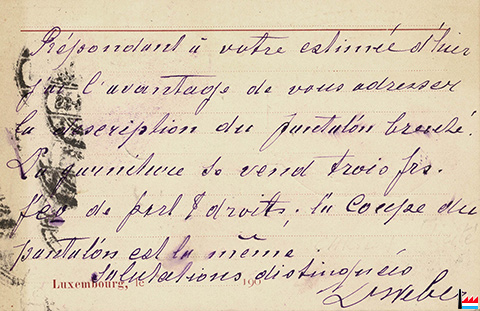 Répondant à votre estimée d'hier
j'ai l'avantage de vous adresser
la description du pantalon breveté.
La garniture se vend trois frs.
de port & droits; la coupe du
pantalon est la même.
Salutations distinguées
Luxembourg, le 190